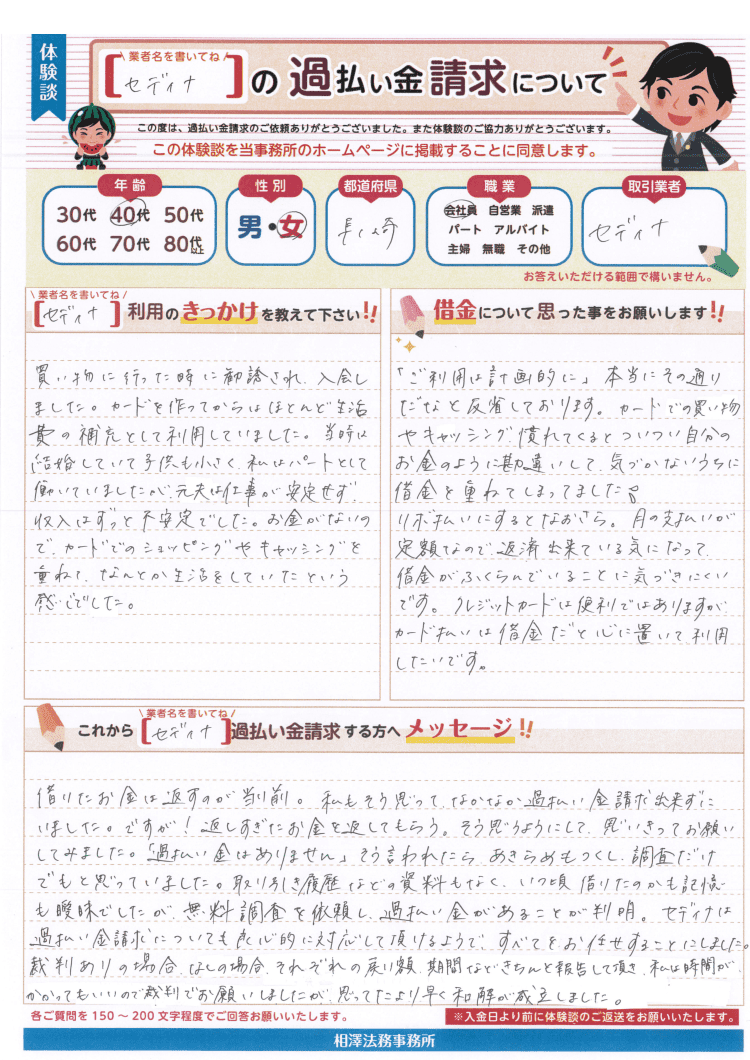 体験談
\ 業者名を書いてね /
[セディナ]の 過払い金請求について
この度は、過払い金請求のご依頼ありがとうございました。また体験談のご協力ありがとうございます。
この体験談を当事務所のホームページに掲載することに同意します。
年齢
30代 40代 50代
60代 70代 80代以上
性別
男・女
都道府県
長崎
職業
会社員 自営業 派遣
パート アルバイト
主婦 無職 その他
取引業者
セディナ
お答えいただける範囲で構いません。
\ 業者名を書いてね /
[セディナ]利用のきっかけを教えて下さい!!
買い物に行った時に勧誘され、入会し
ました。カードを作ってからはほとんど生活
費の補充として利用していました。当時は
結婚していて子供も小さく、私はパートとして
働いていましたが、元夫は仕事が安定せず、
収入はずっと不安定でした。お金がないの
で、カードでのショッピングやキャッシングを
重ねて、なんとか生活をしていたという
感じでした。
借金について思った事をお願いします!!
「ご利用は計画的に」本当にその通り
だなと反省しております。カードでの買い物
やキャッシング慣れてくるとついつい自分の
お金のように勘違いして、気づかないうちに
借金を重ねてしまってました。
リボ払いにするとなおさら。月の支払いが
定額なので、返済出来ている気になって、
借金がふくらんでいることに気づきにくい
です。クレジットカードは便利ではありますが、
カード払いは借金だと心に置いて利用
したいです。
\ 業者名を書いてね /
これから[セディナ]過払い金請求する方へメッセージ!!
借りたお金は返すのが当り前。私もそう思って、なかなか過払い金請求出来ずに
いました。ですが!返しすぎたお金を返してもらう。そう思うようにして、思いきってお願い
してみました。「過払い金はありません」そう言われたら、あきらめもつくし、調査だけ
でもと思っていました。取り引き履歴などの資料もなく、いつ頃借りたのかも記憶
も曖昧でしたが、無料調査を依頼し、過払い金があることが判明。セディナは
過払い金請求についても良心的に対応して頂けるようで、すべてをお任せすることにしました。
裁判ありの場合、なしの場合、それぞれの戻り額、期間などきちんと報告して頂き、私は時間が
かかってもいいので裁判でお願いしましたが、思ってたより早く和解が成立しました。
各ご質問を150～200文字程度でご回答お願いいたします。
※入金日より前に体験談のご返送をお願いいたします。
相澤法務事務所